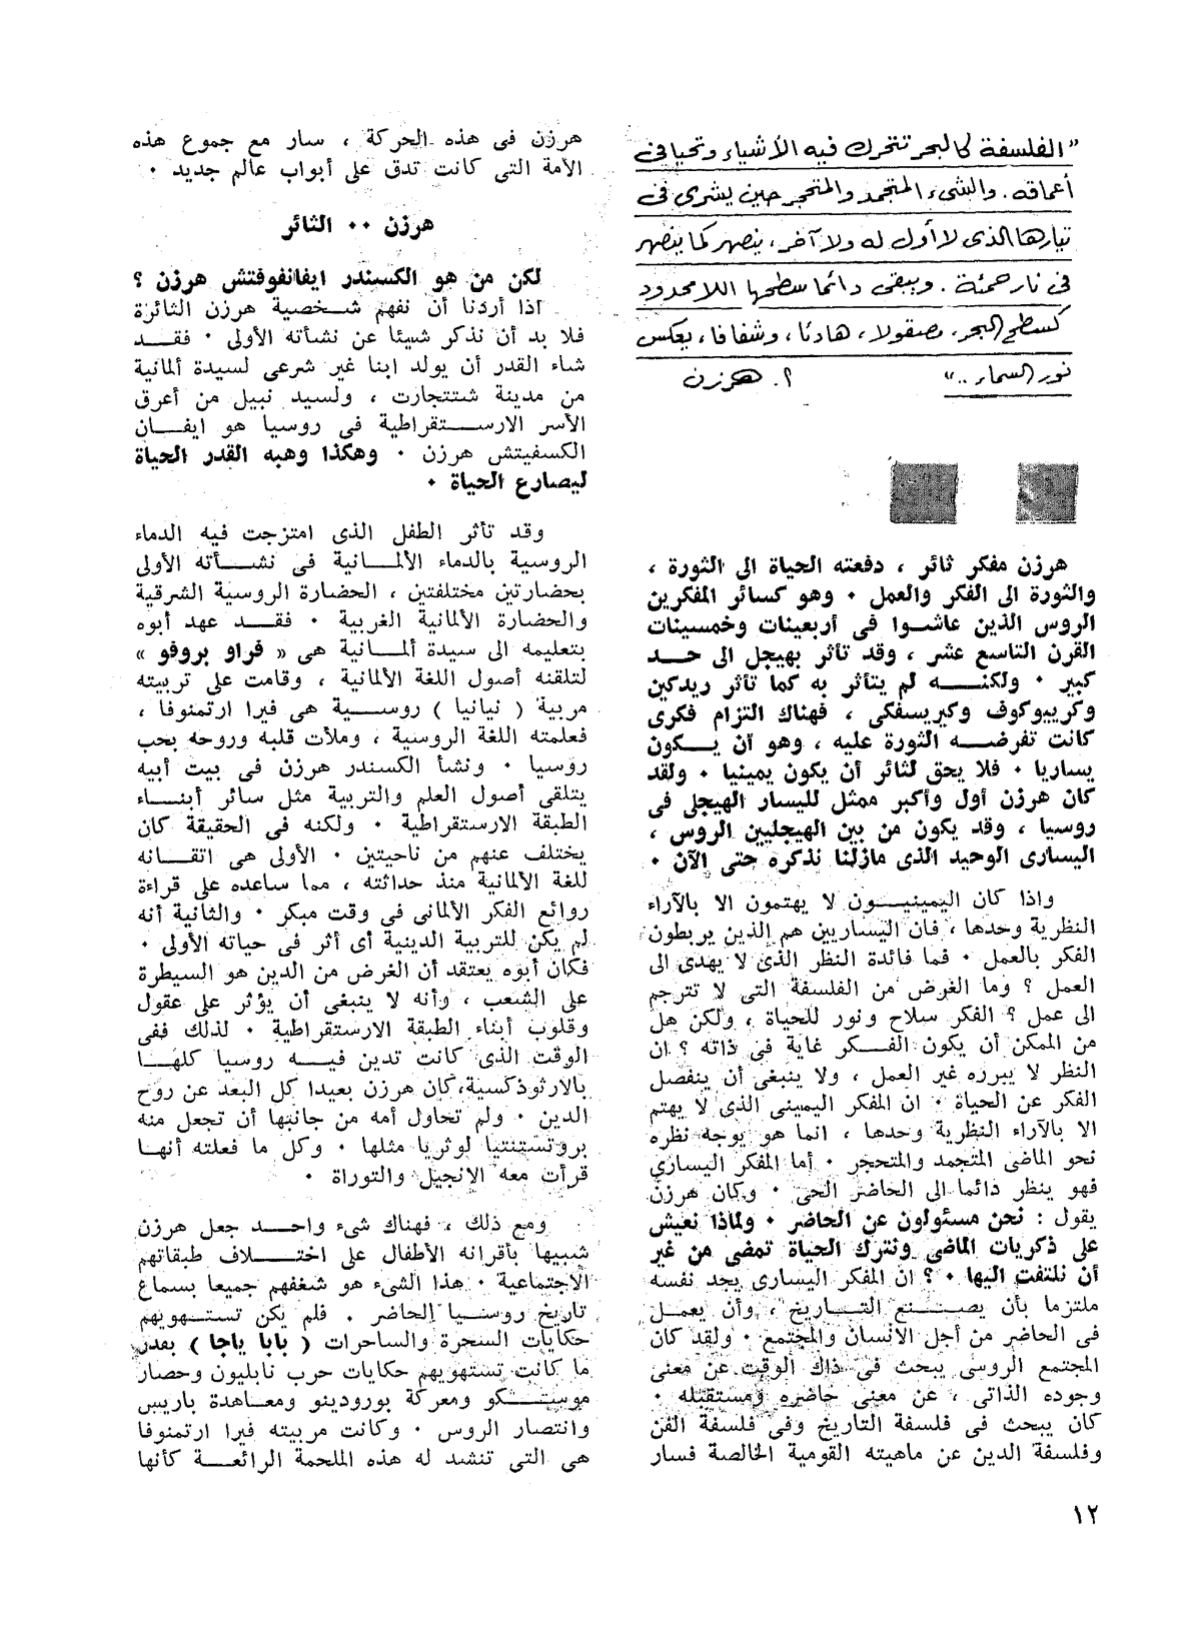 "الفلسفة كالبحر تتحرك فيه الأشياء وتحيا فى
أعماقه. والشىء المتجمد والمتحجر حين يشرى فى
تيارها الذى لا أول له ولا آخر، ينصهر كما ينصهر
فى نار حمئة. ويبقى دائما سطحها اللا محدود
كسطح البحر، مصقولا، هادئا، وشفافا، يعكس
نور السماء .."
أ. هرزن
هرزن مفكر ثائر ، دفعته الحياة الى الثورة ،
والثورة الى الفكر والعمل ٠ وهو كسائر المفكرين
الروس الذين عاشوا فى أربعينات وخمسينات
القرن التاسع عشر ، وقد تأثر بهيجل الى حد
كبير ٠ ولكنه لم يتأثر به كما تأثر ريدكين
وكرييوكوف وكيريسفكى ، فهناك التزام فكرى
كانت تفرضه الثورة عليه ، وهو أن يكون
يساريا ٠ فلا يحق لثائر أن يكون يمينيا ٠ ولقد
كان هرزن أول وأكبر ممثل لليسار الهيجلى فى
روسيا ، وقد يكون من بين الهيجليين الروس ،
اليسارى الوحيد الذى مازلنا نذكره حتى الآن ٠
واذا كان اليمينيون لا يهتمون الا بالآراء
النظرية وحدها ، فان اليساريين هم الذين يربطون
الفكر بالعمل ٠ فما فائدة النظر الذى لا يهدى الى
العمل ؟ وما الغرض من الفلسفة التى لا تترجم
الى عمل ؟ الفكر سلاح ونور للحياة ، ولكن هل
من الممكن أن يكون الفكر غاية فى ذاته ؟ ان
النظر لا يبرره غير العمل ، ولا ينبغى أن ينفصل
الفكر عن الحياة ٠ ان المفكر اليمينى الذى لا يهتم
الا بالآراء النظرية وحدها ، انما هو يوجه نظره
نحو الماضى المتجمد والمتحجر ٠ أما المفكر اليسارى
فهو ينظر دائما الى الحاضر الحى ٠ وكان هرزن
يقول : نحن مسئولون عن الحاضر ٠ ولماذا نعيش
على ذكريات الماضى ونترك الحياة تمضى من غير
أن نلتفت اليها ٠ ؟ ان المفكر اليسارى يجد نفسه
ملتزما بأن يصنع التاريخ ، وأن يعمل
فى الحاضر من أجل الانسان والمجتمع ٠ ولقد كان
المجتمع الروسى يبحث فى ذاك الوقت عن معنى
وجوده الذاتى ، عن معنى حاضره ومستقبله ٠
كان يبحث فى فلسفة التاريخ وفى فلسفة الفن
وفلسفة الدين عن ماهيته القومية الخالصة فسار
هرزن فى هذه الحركة ، سار مع جموع هذه
الأمة التى كانت تدق على أبواب عالم جديد ٠
هرزن ٠٠ الثائر
لكن من هو الكسندر ايفانفوفتش هرزن ؟
اذا أردنا أن نفهم شخصية هرزن الثائرة
فلا بد أن نذكر شيئا عن نشأته الأولى ٠ فقد
شاء القدر أن يولد ابنا غير شرعى لسيدة ألمانية
من مدينة شتتجارت ، ولسيد نبيل من أعرق
الأسر الارستقراطية فى روسيا هو ايفان
الكسفيتش هرزن ٠ وهكذا وهبه القدر الحياة
ليصارع الحياة ٠
وقد تأثر الطفل الذى امتزجت فيه الدماء
الروسية بالدماء الألمانية فى نشأته الأولى
بحضارتين مختلفتين ، الحضارة الروسية الشرقية
والحضارة الألمانية الغربية ٠ فقد عهد أبوه
بتعليمه الى سيدة ألمانية هى « فراو بروفو »
لتلقنه أصول اللغة الألمانية ، وقامت على تربيته
مربية ( نيانيا ) روسية هى فيرا ارتمنوفا ،
فعلمته اللغة الروسية ، وملأت قلبه وروحه بحب
روسيا ٠ ونشأ الكسندر هرزن فى بيت أبيه
يتلقى أصول العلم والتربية مثل سائر أبناء
الطبقة الارستقراطية ٠ ولكنه فى الحقيقة كان
يختلف عنهم من ناحيتين ٠ الأولى هى اتقانه
للغة الألمانية منذ حداثته ، مما ساعده على قراءة
روائع الفكر الألمانى فى وقت مبكر ٠ والثانية أنه
لم يكن للتربية الدينية أى أثر فى حياته الأولى ٠
فكان أبوه يعتقد أن الغرض من الدين هو السيطرة
على الشعب ، وأنه لا ينبغى أن يؤثر على عقول
وقلوب أبناء الطبقة الارستقراطية ٠ لذلك ففى
الوقت الذى كانت تدين فيه روسيا كلها
بالارثوذكسية، كان هرزن بعيدا كل البعد عن روح
الدين ٠ ولم تحاول أمه من جانبها أن تجعل منه
بروتستنتيا لوثريا مثلها ٠ وكل ما فعلته أنها
قرأت معه الانجيل والتوراة ٠
ومع ذلك ، فهناك شىء واحد جعل هرزن
شبيها بأقرانه الأطفال على اختلاف طبقاتهم
الاجتماعية ٠ هذا الشىء هو شغفهم جميعا بسماع
تاريخ روسيا الحاضر . فلم يكن تستهويهم
حكايات السحرة والساحرات ( بابا ياجا ) بقدر
ما كانت تستهويهم حكايات حرب نابليون وحصار
موسكو ومعركة بورودينو ومعاهدة باريس
وانتصار الروس ٠ وكانت مربيته فيرا ارتمنوفا
هى التى تنشد له هذه الملحمة الرائعة كأنها
١٢